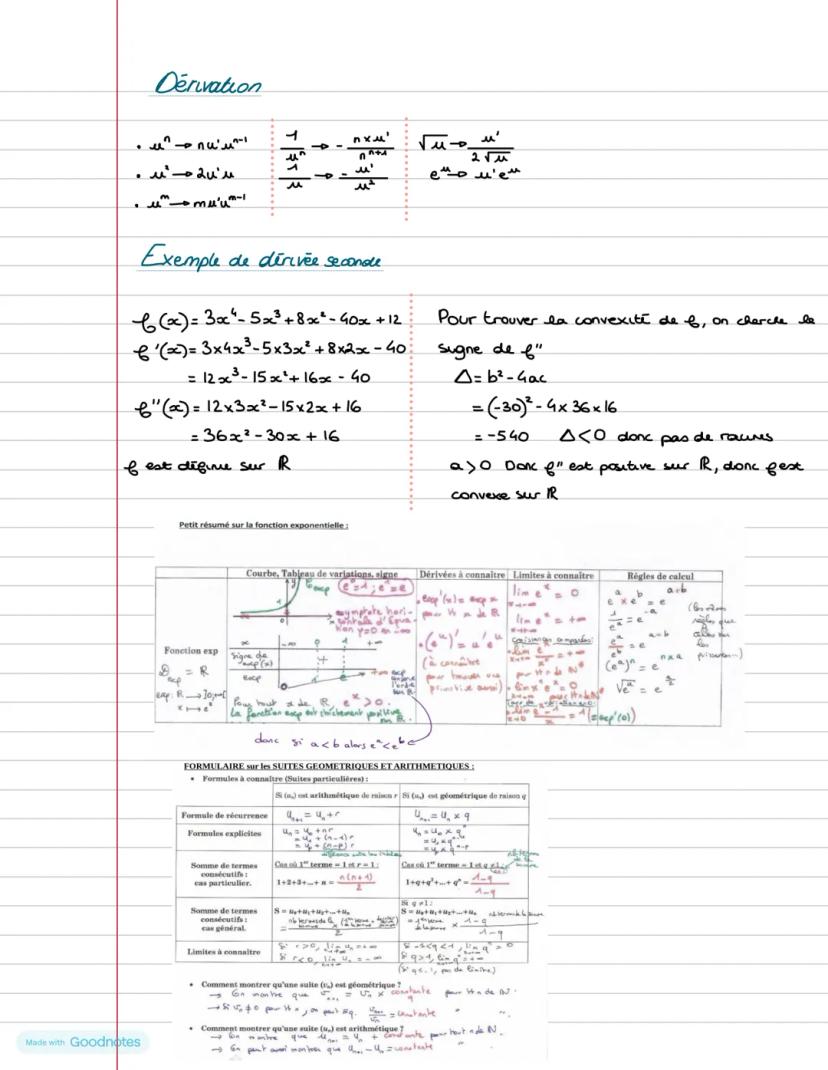 Dérivation
• uⁿ → nu'uⁿ⁻¹
• u² → 2u'u
• uᵐ → mu'uᵐ⁻¹
1/uⁿ → - n×u'/nⁿ⁺¹
1/u → - u'/u²
√u → u'/2√u
eᵘ → u'eᵘ
Exemple de dérivée seconde
f(x) = 3x⁴ - 5x³ + 8x² - 40x + 12
f'(x) = 3×4x³ - 5×3x² + 8×2x - 40
= 12x³ - 15x² + 16x - 40
f''(x) = 12×3x² - 15×2x + 16
= 36x² - 30x + 16
f est définie sur ℝ
Pour trouver la convexité de f, on cherche le
signe de f''
Δ = b² - 4ac
= (-30)² - 4×36×16
= -540 Δ<0 donc pas de racines
a>0 Donc f'' est positive sur ℝ, donc f est
convexe sur ℝ
Petit résumé sur la fonction exponentielle :
Courbe, Tableau de variations, signe
Dérivées à connaître
Limites à connaître
Règles de calcul
Fonction exp
D exp = ℝ
exp : ℝ → ]0;+∞[
x ↦ eˣ
e⁰=1 ; e¹=e
asymptote hori-
zontale d'équa-
tion y=0 en -∞
x -∞ 0 1 +∞
signe de exp(x) +
exp
Pour tout x de ℝ, eˣ > 0.
La fonction exp est strictement positive sur ℝ.
exp'(x) = exp x
pour ∀ x de ℝ
(eᵘ)' = u'eᵘ
(à connaître
pour trouver une
primitive aussi)
lim eˣ = 0
lim eˣ = +∞
croissances comparées:
eᵃ × eᵇ = eᵃ⁺ᵇ
1/eᵃ = e⁻ᵃ
eᵃ/eᵇ = eᵃ⁻ᵇ
(eᵃ)ⁿ = eⁿˣᵃ
√eᵃ = e^(a/2)
donc si a<b alors eᵃ<eᵇ
FORMULAIRE sur les SUITES GEOMETRIQUES ET ARITHMETIQUES :
• Formules à connaître (Suites particulières) :
Si (uₙ) est arithmétique de raison r
Si (uₙ) est géométrique de raison q
Formule de récurrence
uₙ₊₁ = uₙ + r
uₙ₊₁ = uₙ × q
Formules explicites
uₙ = u₀ + nr
= u₁ + (n-1)r
= uₚ + (n-p)r
uₙ = u₀ × qⁿ
= u₁ × qⁿ⁻¹
= uₚ × qⁿ⁻ᵖ
Somme de termes
consécutifs :
cas particulier.
Cas où 1ᵉʳ terme = 1 et r = 1 :
1+2+3+...+ n = n(n+1)/2
Cas où 1ᵉʳ terme = 1 et q ≠ 1 :
1+q+q²+...+ qⁿ =
Somme de termes
consécutifs :
cas général.
S = u₀+u₁+u₂+...+uₙ
Si q ≠ 1 :
S = u₀+u₁+u₂+...+uₙ
Limites à connaître
Si r>0, lim uₙ = +∞
Si r<0, lim uₙ = -∞
Si -1<q<1, lim qⁿ = 0
Si q>1, lim qⁿ = +∞
• Comment montrer qu'une suite (vₙ) est géométrique ?
→ On montre que vₙ₊₁ = vₙ × constante pour ∀ n de ℕ.
• Comment montrer qu'une suite (uₙ) est arithmétique ?
→ On montre que uₙ₊₁ = uₙ + constante pour tout n de ℕ.
→ On peut aussi montrer que uₙ₊₁ - uₙ = constante "
Made with Goodnotes